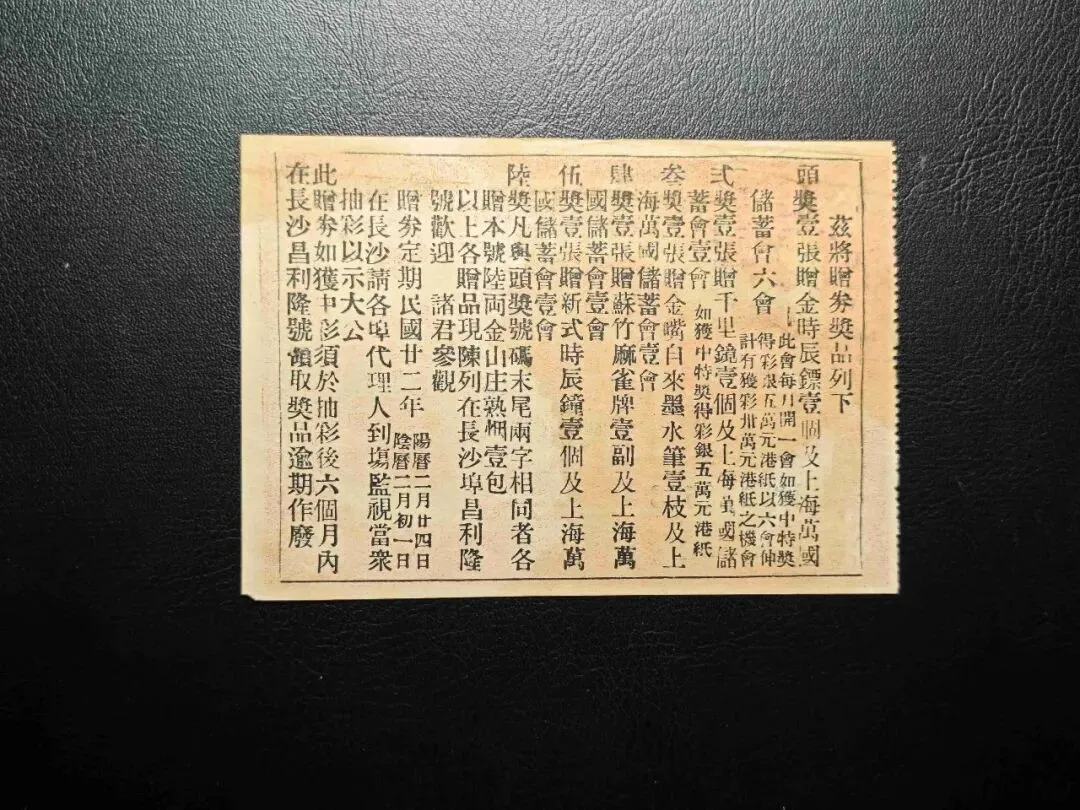 茲將贈券獎品列下
頭獎壹張贈金時辰鏢壹個及上海萬國
儲蓄會六會
此會每月開一會如獲中特獎
得彩銀五萬元港紙以六會伸
計有獲彩卅萬元港紙之機會
弍獎壹張贈千里鏡壹個及上海萬國儲
蓄會壹會 如獲中特獎得彩銀五萬元港紙
叁獎壹張贈金嘴自來墨水筆壹枝及上
海萬國儲蓄會壹會
肆獎壹張贈蘇竹麻雀牌壹副及上海萬
國儲蓄會壹會
伍獎壹張贈新式時辰鐘壹個及上海萬
國儲蓄會壹會
陸獎凡與頭獎號碼末尾兩字相同者各
贈本號陸両金山庄熟烟壹包
以上各贈品現陳列在長沙埠昌利隆
號歡迎 諸君參觀
贈券定期民國廿二年
陽曆二月廿四日
陰曆二月初一日
在長沙請各埠代理人到塲監視當衆
抽彩以示大公
此贈券如獲中彩須於抽彩後六個月內
在長沙昌利隆號領取獎品逾期作廢